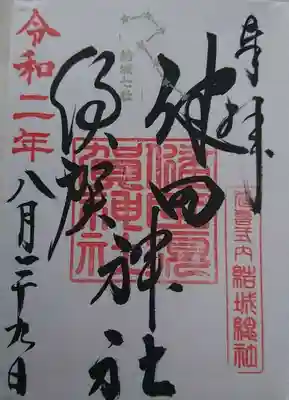 奉拝
延喜式内 結城縣社
健田神社
結城七社
須賀神社
令和二年
八月二十九日